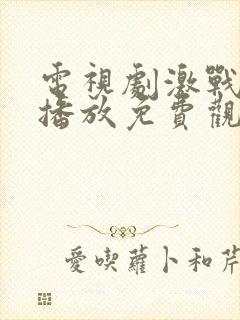 電視劇激戰
播放免費觀
愛喫蘿卜和芹